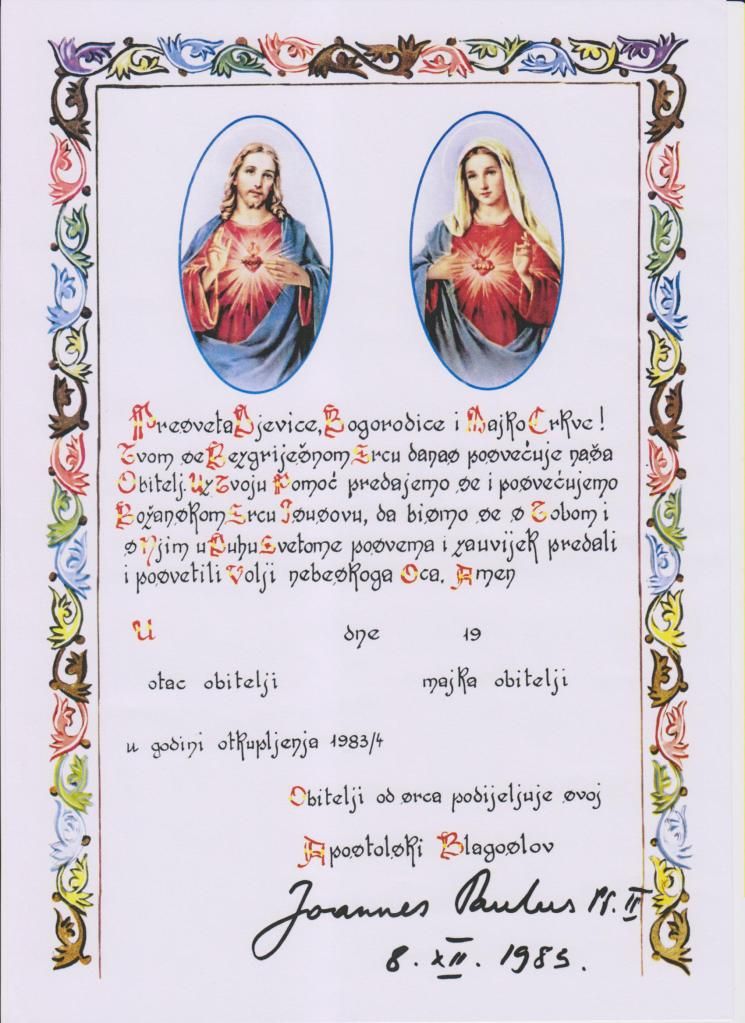 Presveta Djevice, Bogorodice i Majko Crkve!
Tvom se Bezgriješnom Srcu danas posvećuje naša
Obitelj. Uz Tvoju Pomoć predajemo se i posvećujemo
Božanskom Srcu Isusovu, da bismo se s Tobom i
s Njim u Duhu Svetome posvema i zauvijek predali
i posvetili Volji nebeskoga Oca. Amen
U dne 19
otac obitelji majka obitelji
u godini otkupljenja 1983/4
Obitelji od srca podijeljuje svoj
Apostolski Blagoslov
Joannes Paulus PP. II
8. XII. 1983.